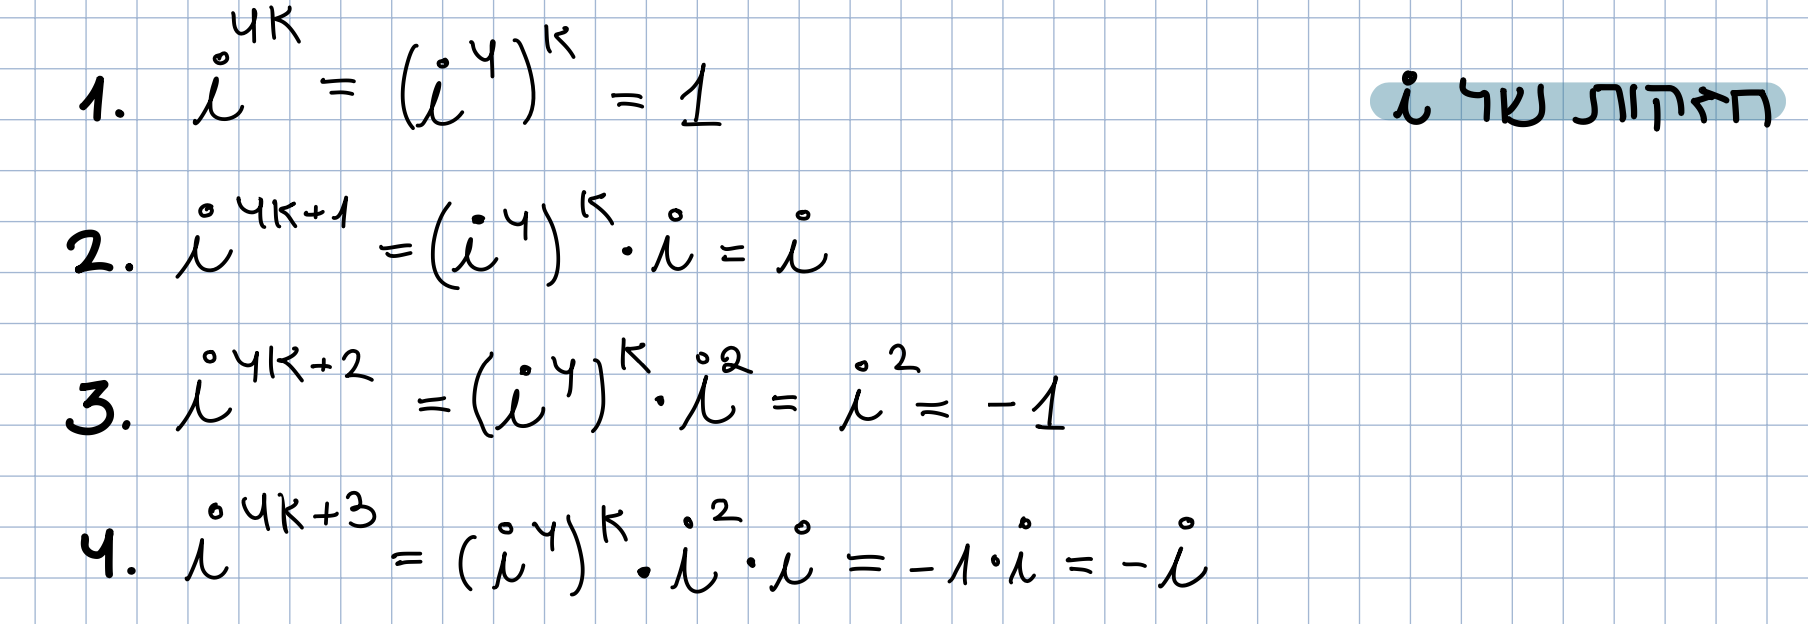 חזקות של i
1. i^{4k} = (i^4)^k = 1
2. i^{4k+1} = (i^4)^k · i = i
3. i^{4k+2} = (i^4)^k · i^2 = i^2 = -1
4. i^{4k+3} = (i^4)^k · i^2 · i = -1 · i = -i